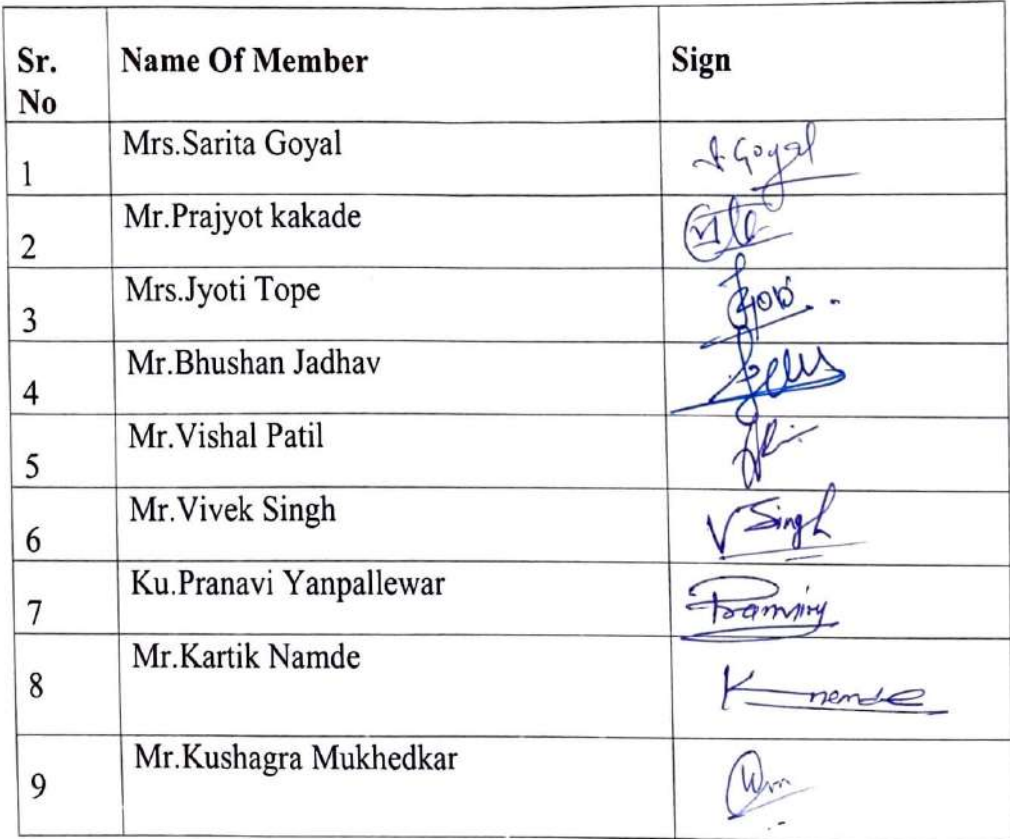 Sr. No Name Of Member Sign
1 Mrs.Sarita Goyal S.Goyal
2 Mr.Prajyot kakade
3 Mrs.Jyoti Tope
4 Mr.Bhushan Jadhav
5 Mr.Vishal Patil
6 Mr.Vivek Singh V Singh
7 Ku.Pranavi Yanpallewar
8 Mr.Kartik Namde K namde
9 Mr.Kushagra Mukhedkar